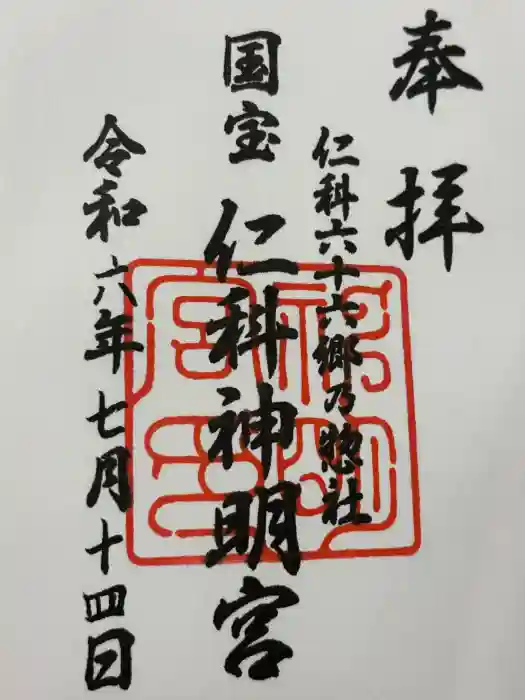 奉拝
仁科六十六郷乃惣社
国宝 仁科神明宮
令和六年七月十四日